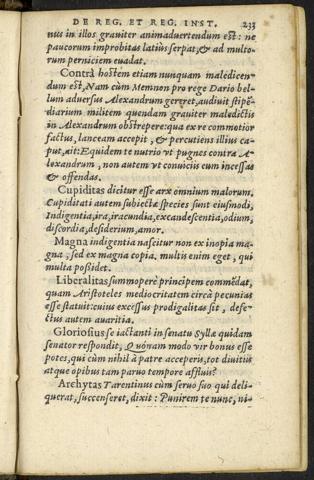 DE REG. ET REG. INST. 233
nus in illos grauiter animaduertendum est: ne
paucorum improbitas latiùs serpat, & ad multo-
rum perniciem euadat.
Contrà hostem etiam nunquam maledicen-
dum est, Nam cùm Memnon pro rege Dario bel-
lum aduersus Alexandrum gereret, audiuit stipē-
diarium militem quendam grauiter maledictis
in Alexandrum obstrepere: qua ex re commotior
factus, lanceam accepit, & percutiens illius ca-
put, ait: Equidem te nutrio vt pugnes contra A-
lexandrum, non autem vt conuiciis eum incessas
& offendas.
Cupiditas dicitur esse arx omnium malorum.
Cupiditati autem subiectæ species sunt eiusmodi,
Indigentia, ira, iracundia, excandescentia, odium,
discordia, desiderium, amor.
Magna indigentia nascitur non ex inopia ma-
gna, sed ex magna copia. multis enim eget, qui
multa possidet.
Liberalitas summopere principem commēdat,
quam Aristoteles mediocritatem circà pecunias
esse statuit: cuius excessus prodigalitas sit, defe-
ctus autem auaritia.
Gloriosius se iactanti in senatu Syllæ quidam
senator respondit, Quónam modo vir bonus esse
potes, qui cùm nihil à patre acceperis, tot diuitiis
atque opibus tam paruo tempore affluis?
Archytas Tarentinus cùm seruo suo qui deli-
querat, succenseret, dixit: Punirem te nunc, ni-